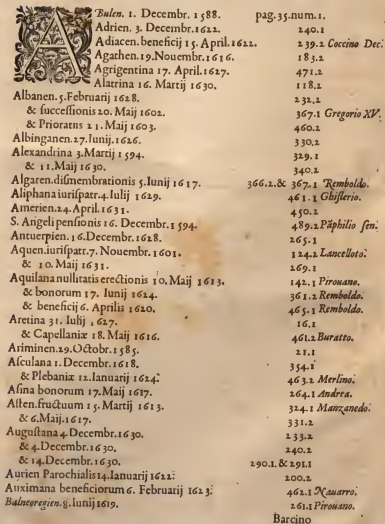 ABulen. 1. Decembr. 1588. pag. 35. num. 1.
Adrien. 3. Decembr. 1622. 240.1
Adiacen. beneficij 15. April. 1622. 239.2 Coccino Dec.
Agathen. 19. Nouembr. 1616. 183.2
Agrigentina 17. April. 1627. 471.2
Alatrina 16. Martij 1630. 118.2
Albanen. 5. Februarij 1628. 232.2
& successionis 20. Maij 1602. 367.1 Gregorio XV.
& Prioratus 21. Maij 1603. 460.2
Albinganen. 27. Iunij. 1626. 330.2
Alexandrina 3. Martij 1594. 329.1
& 11. Maij 1630. 340.2
Algaren. dismembrationis 5. Iunij 1617. 366.2. & 367.1 Remboldo.
Aliphana iurispatr. 4. Iulij 1629. 461.1 Ghislerio.
Amerien. 24. April. 1631. 450.2
S. Angeli pensionis 16. Decembr. 1594. 489.2 Paphilio sen.
Antuerpien. 16. Decembr. 1628. 265.1
Aquen. iurispatr. 7. Nouembr. 1601. 124.2 Lancelloto.
& 10. Maij 1631. 269.1
Aquilana nullitatis erectionis 10. Maij 1613. 142.1 Pirouano.
& bonorum 17. Iunij 1624. 361.2 Remboldo.
& beneficij 6. Aprilis 1620. 465.1 Remboldo.
Aretina 31. Iulij 1627. 16.1
& Capellaniæ 18. Maij 1616. 461.2 Buratto.
Ariminen. 29. Octobr. 1585. 21.1
Asculana 1. Decembr. 1618. 354.1
& Plebaniæ 12. Ianuarij 1624. 463.2 Merlino.
Asina bonorum 17. Maij 1617. 264.1 Andrea.
Asten. fructuum 15. Martij 1613. 324.1 Manzanedo.
& 6. Maij. 1617. 331.2
Augustana 4. Decembr. 1630. 233.2
& 4. Decembr. 1630. 240.2
& 14. Decembr. 1630. 290.1. & 291.1
Aurien Parochialis 14. Ianuarij 1622. 200.2
Auximana beneficiorum 6. Februarij 1623. 462.1 Nauarro.
Balneoregien. 8. Iunij 1619. 261.1 Pirouano.
Barcino